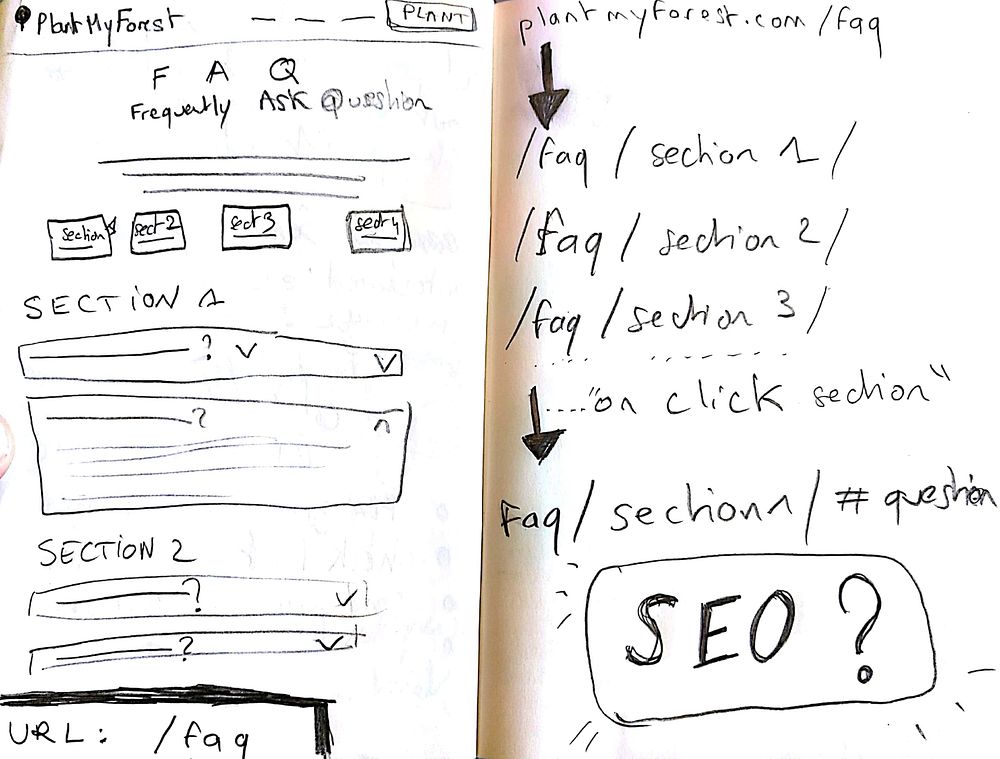 PlantMyForest
PLANT
F A Q
Frequently Ask Question
section 1
sect 2
sect 3
sect 4
SECTION 1
? V V
? ^
SECTION 2
? V
? V
URL: /faq
plantmyforest.com/faq
/faq/section 1/
/faq/section 2/
/faq/section 3/
...."on click section"
Faq/section1/#question
SEO ?